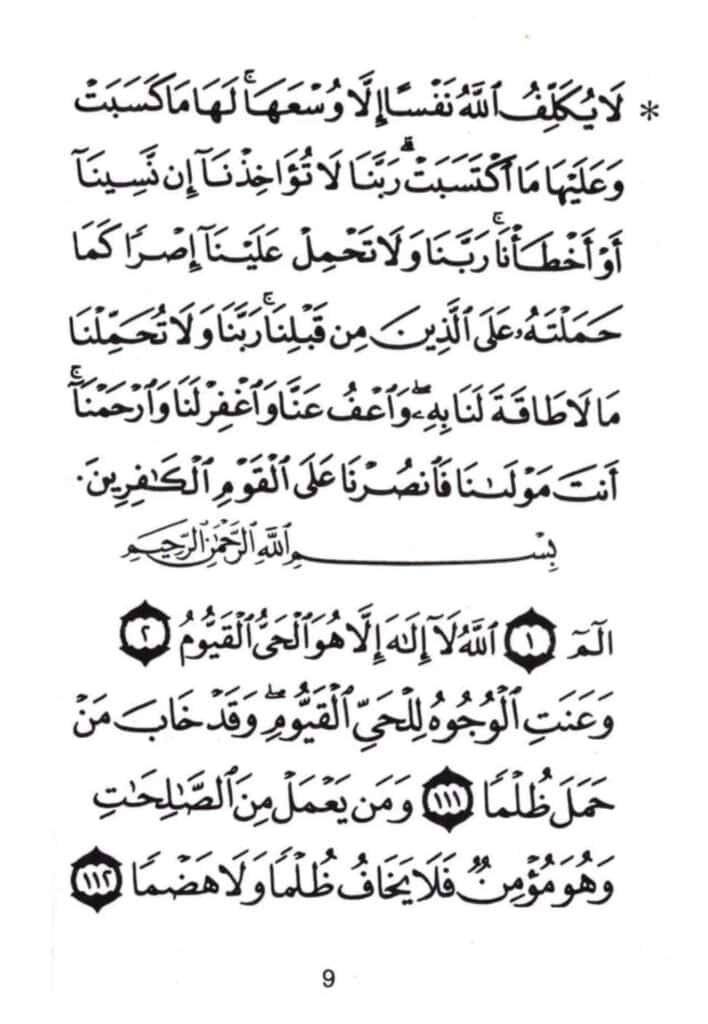 * لَا يُكَلِّفُ ٱللَّهُ نَفْسًا إِلَّا وُسْعَهَا ۚ لَهَا مَا كَسَبَتْ
وَعَلَيْهَا مَا ٱكْتَسَبَتْ ۗ رَبَّنَا لَا تُؤَاخِذْنَآ إِن نَّسِينَآ
أَوْ أَخْطَأْنَا ۚ رَبَّنَا وَلَا تَحْمِلْ عَلَيْنَآ إِصْرًا كَمَا
حَمَلْتَهُۥ عَلَى ٱلَّذِينَ مِن قَبْلِنَا ۚ رَبَّنَا وَلَا تُحَمِّلْنَا
مَا لَا طَاقَةَ لَنَا بِهِۦ ۖ وَٱعْفُ عَنَّا وَٱغْفِرْ لَنَا وَٱرْحَمْنَآ ۚ
أَنتَ مَوْلَىٰنَا فَٱنصُرْنَا عَلَى ٱلْقَوْمِ ٱلْكَٰفِرِينَ.
بِسْمِ ٱللَّهِ ٱلرَّحْمَٰنِ ٱلرَّحِيمِ
الٓمٓ ١ ٱللَّهُ لَآ إِلَٰهَ إِلَّا هُوَ ٱلْحَىُّ ٱلْقَيُّومُ ٢
وَعَنَتِ ٱلْوُجُوهُ لِلْحَىِّ ٱلْقَيُّومِ ۖ وَقَدْ خَابَ مَنْ
حَمَلَ ظُلْمًا ١١١ وَمَن يَعْمَلْ مِنَ ٱلصَّٰلِحَٰتِ
وَهُوَ مُؤْمِنٌ فَلَا يَخَافُ ظُلْمًا وَلَا هَضْمًا ١١٢
9